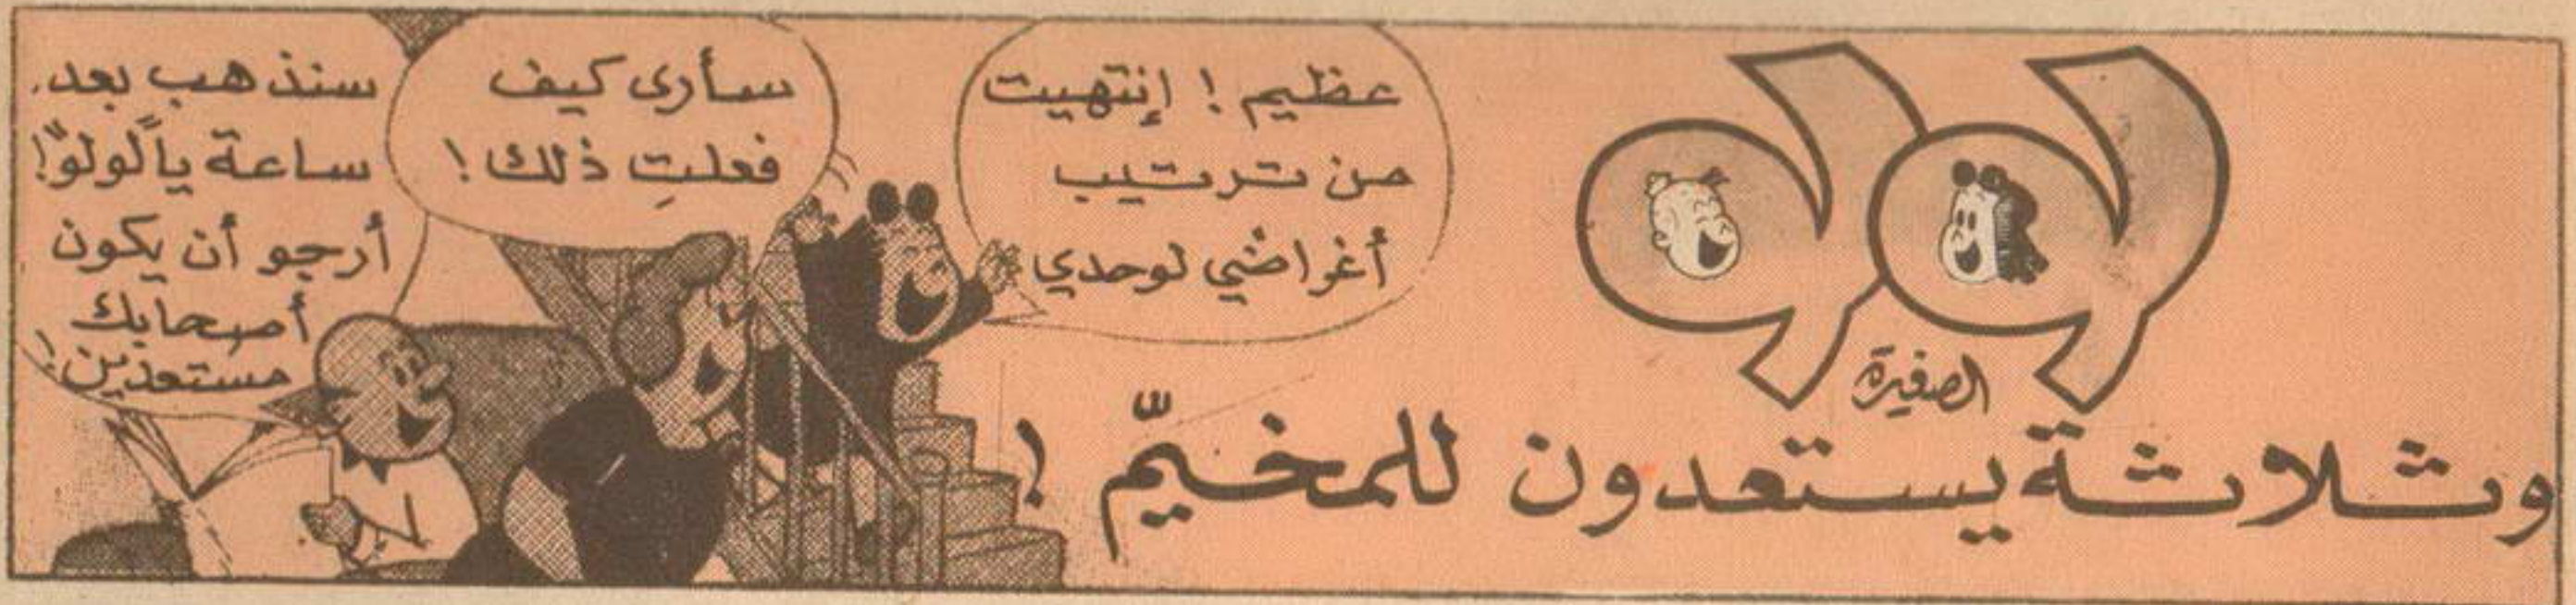 لولو
الصغيرة
وثلاثة يستعدون للمخيّم!
عظيم! إنتهيت
من ترتيب
أغراضي لوحدي
سأرى كيف
فعلتِ ذلك!
سنذهب بعد
ساعة يا لولو!
أرجو أن يكون
أصحابك
مستعدين!